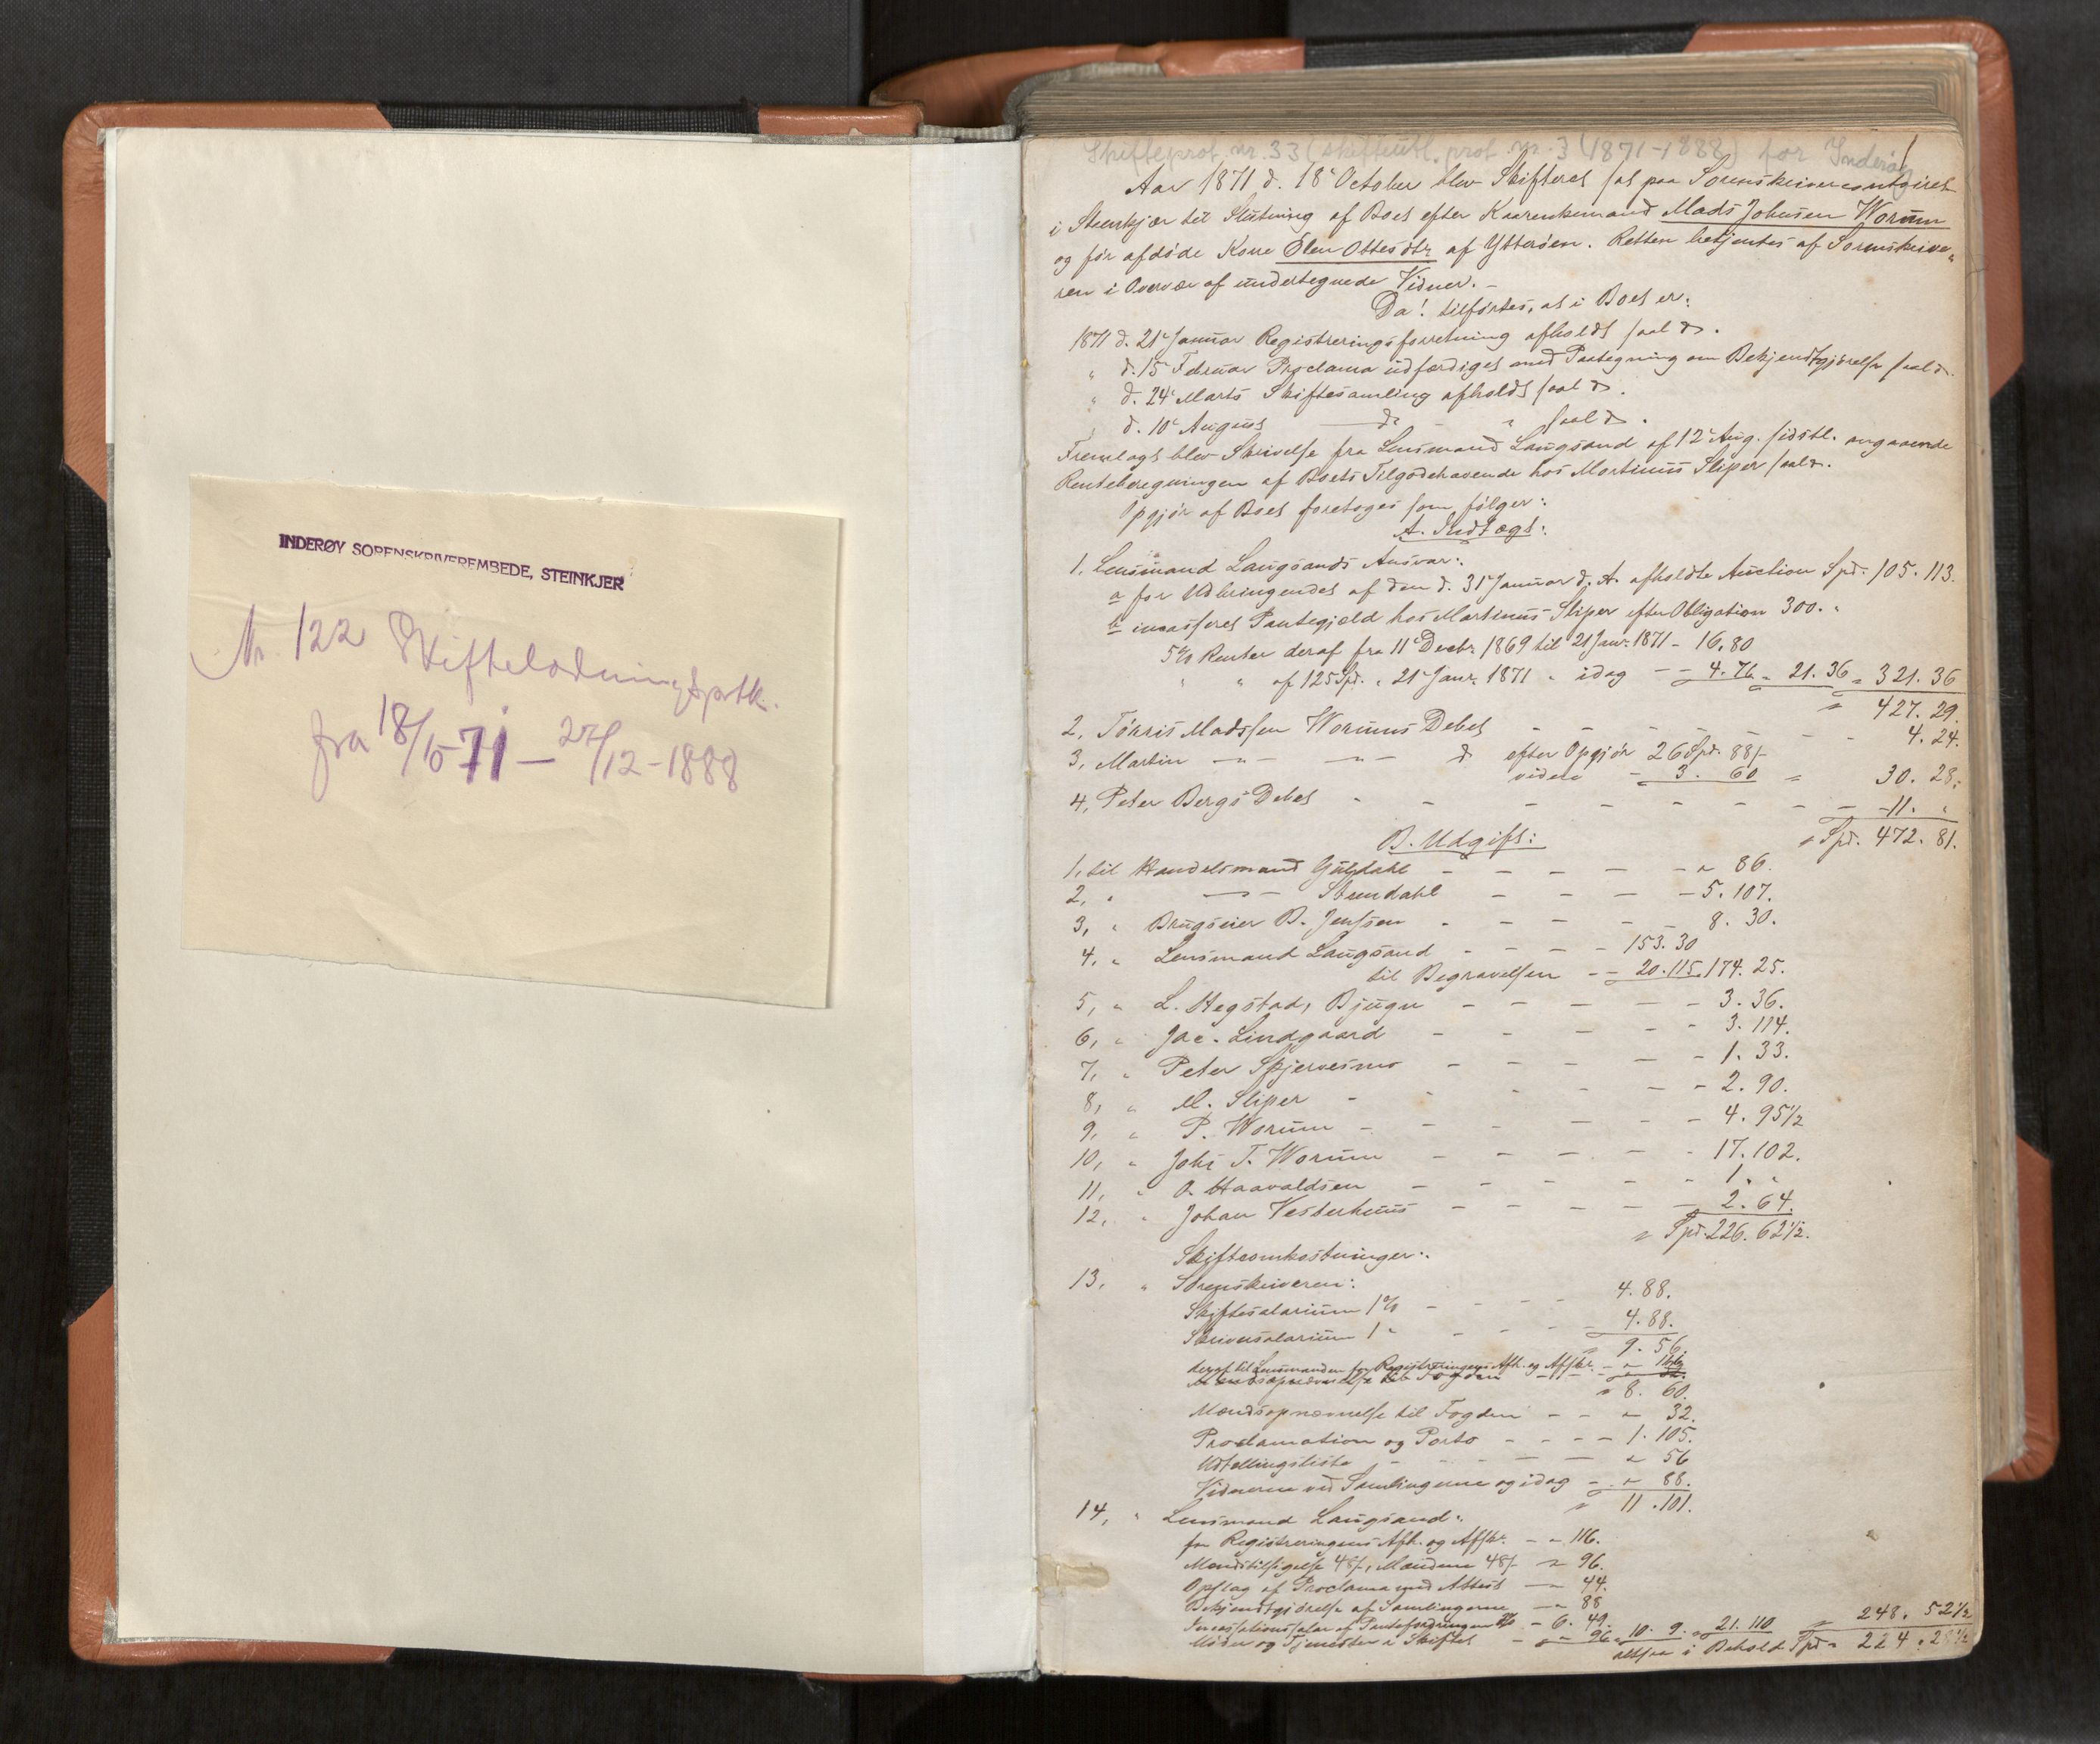 INDERØY SORENSKRIVEREMBEDE, STEINKJER
Nr. 122 Skiftelodningsprtk.
fra 18/10-71 — 27/12-1888
Skifteprot. nr. 33 (skifteutl. prot. nr. 3 (1871-1888) for Inderøy
1
Aar 1871 d. 18de October blev Skifteret sat paa Sorenskrivercontoiret
i Steenkjær til Slutning af Boet efter Kaarenkemand Mads Johnsen Worum
og før afdøde Kone Elen Ottesdtr af Ytterøen. Retten betjentes af Sorenskrive-
ren i Overvær af undertegnede Vidner.-
Da! tilførtes, at i Boet er:
1871 d. 21de Januar Registreringsforretning afholdt
" d. 15 Februar Proclama udfærdiget med Paategning om Bekjendtgjørelse
" d. 24de Marts Skiftesamling afholdt
" d. 10de August — do — "
Fremlagt blev Skrivelse fra Lensmand Langsand af 12te Aug. sidstl. angaaende
Renteberegningen af Boets Tilgodehavende hos Martinus Sliper
Opgjør af Boet foretoges som følger:
A. Indtægt:
1, Lensmand Langsands Ansvar:
a for Udbringendet af den d. 31te Januar d. A. afholdte Auction Spd. 105. 113.
b incasseret Pantegjæld hos Martinus Sliper efter Obligation 300. "
5% Renter deraf fra 11te Decbr. 1869 til 21 Janr. 1871 - 16.80
" " af 125 Spd. " 21de Janr. 1871 " idag - - 4. 76 = 21. 36 = 321. 36
" 427. 29.
2, Tørris Madssen Worums Debet - - - - - - 4. 24.
3, Martin —"— —"— do efter Opgjør 26 Spd. 88/-
viden - 3. 60 = 30. 28.
4, Peter Bergs Debet - - - - - - - - 11. "
B. Udgift: = Spd. 472. 81.
1, til Handelsmand Güldahl - - - - - " 86.
2, " —"— Strendahl - - - - 5. 107.
3, " Brugseier B. Jenssen - - - - 8. 30.
4, " Lensmand Langsand - - - - 153. 30
til Begravelsen - - 20. 115. 174. 25.
5, " L. Hegstad, Bjugn - - - - - 3. 36.
6, " Jac. Lindgaard - - - - - 3. 114.
7, " Peter Skjervesmo - - - - - 1. 33.
8, " M. Sliper - - - - - 2. 90.
9, " P. Worum - - - - - 4. 95 1/2
10, " Johs T. Worum - - - - - 17. 102.
11, " O. Haavaldsen - - - - - 1. "
12, " Johan Vesterhuus - - - - - 2. 64.
= Spd. 226. 62 1/2.
Skifteomkostninger:
13, " Sorenskriveren:
Skiftesalarium 1% - - - - 4. 88.
Skriversalarium 1 " - - - - 4. 88.
9. 56.
deraf til Lensmanden for Registreringens Afh. og Afskr. - "
" 8. 60.
Mændsopnævnelse til Fogden - - " 32.
Proclamation og Porto - - - - 1. 105.
Udtællingsliste - - - - - " 56
Vidnerne ved Samlingerne og idag - " 88.
" 11. 101.
14, " Lensmand Langsand:
for Registreringens Afh. og Afskr. - " 116.
Mændstilsigelse 48/-, Mændene 48/- " 96.
Opslag af Proclama med Attest — 44.
Bekjendtgjørelse af Samlingerne — " 88
Incassationssalær af Pantefordringen 2% - 6. 49.
Møder og Tjenester i Skiftet - " 96 = 10. 9. = 21. 110 = 248. 52 1/2
altsaa i Behold Spd. 224. 28 1/2